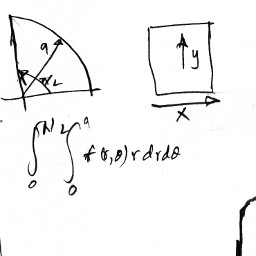 a
π/2
y
x
∫₀^{π/2} ∫₀^a f(r,θ) r dr dθ